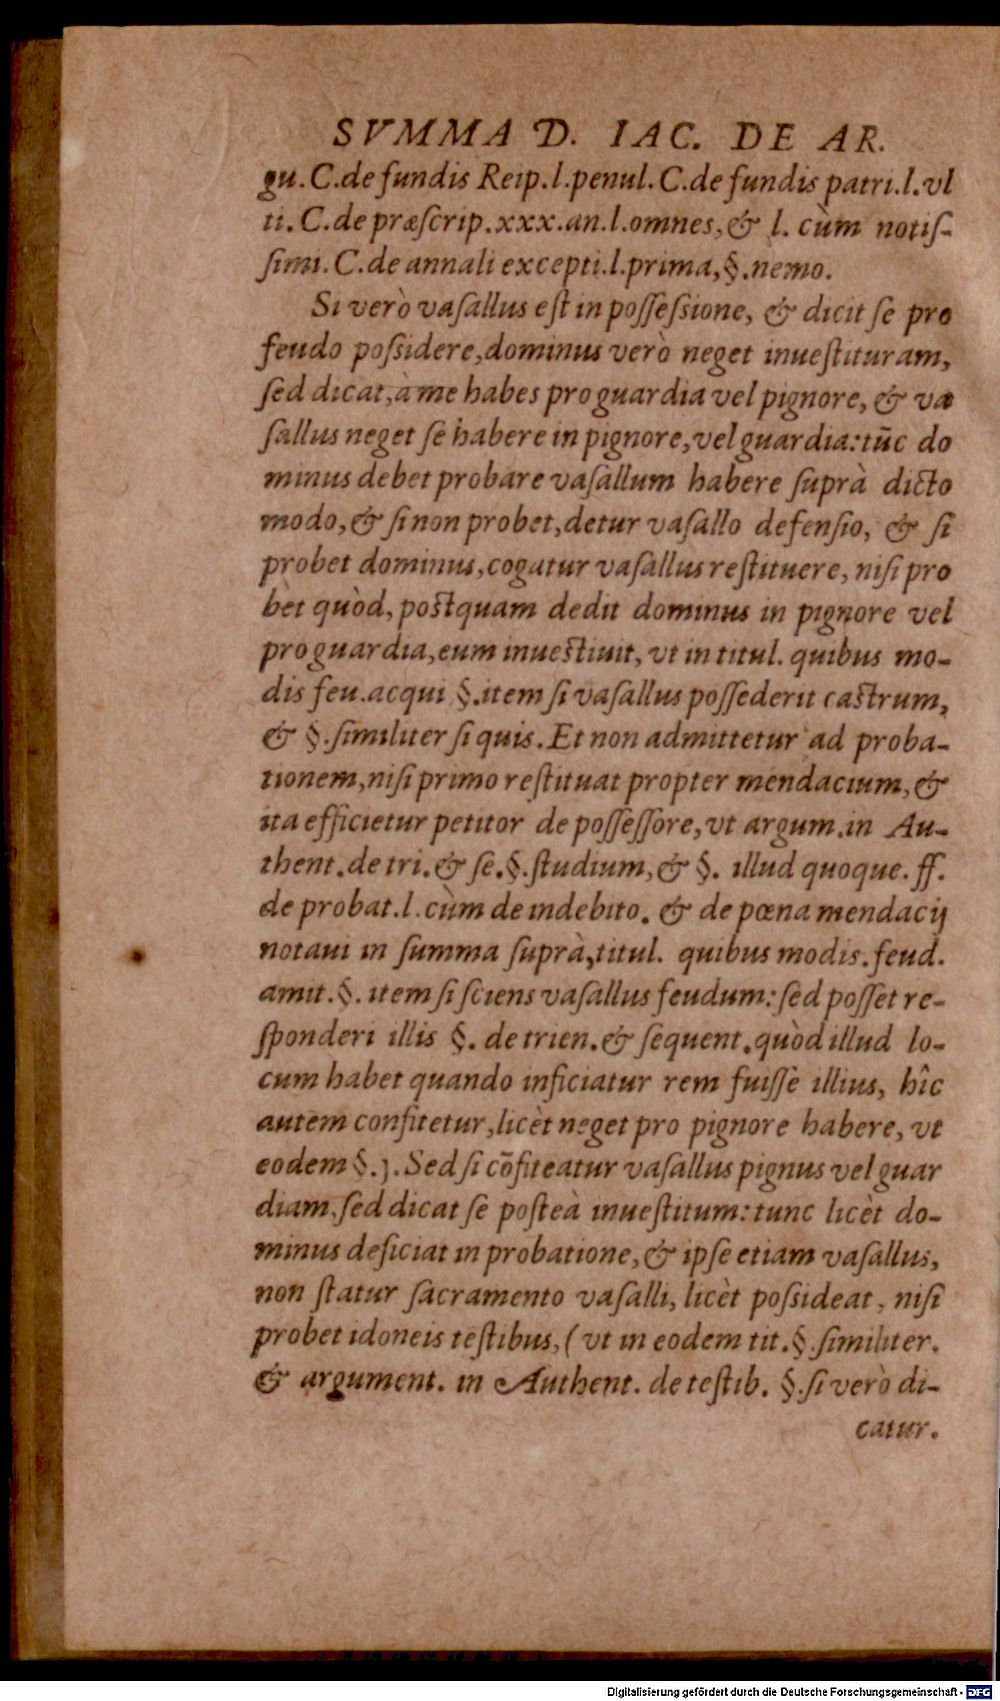 SVMMA D. IAC. DE AR.
gu. C. de fundis Reip. l. penul. C. de fundis patri. l. vl
ti. C. de præscrip. xxx. an. l. omnes, & l. cùm notiſ-
ſimi. C. de annali excepti. l. prima, §. nemo.
Si verò vaſallus eſt in poſſeſsione, & dicit ſe pro
feudo poſsidere, dominus verò neget inueſtituram,
ſed dicat, à me habes pro guardia vel pignore, & va
ſallus neget ſe habere in pignore, vel guardia: tūc do
minus debet probare vaſallum habere ſuprà dicto
modo, & ſi non probet, detur vaſallo defenſio, & ſi
probet dominus, cogatur vaſallus reſtituere, niſi pro
bet quòd, poſtquam dedit dominus in pignore vel
pro guardia, eum inueſtiuit, vt in titul. quibus mo-
dis feu. acqui §. item ſi vaſallus poſſederit caſtrum,
& §. ſimiliter ſi quis. Et non admittetur ad proba-
tionem, niſi primo reſtituat propter mendacium, &
ita efficietur petitor de poſſeſſore, vt argum. in Au-
thent. de tri. & ſe. §. ſtudium, & §. illud quoque. ff.
de probat. l. cùm de indebito. & de pœna mendacij
notaui in ſumma ſuprà, titul. quibus modis. feud.
amit. §. item ſi ſciens vaſallus feudum: ſed poſſet re-
ſponderi illis §. de trien. & ſequent. quòd illud lo-
cum habet quando inficiatur rem fuiſſe illius, hîc
autem confitetur, licèt neget pro pignore habere, vt
eodem §. j. Sed ſi cōfiteatur vaſallus pignus vel guar
diam, ſed dicat ſe poſteà inueſtitum: tunc licèt do-
minus deficiat in probatione, & ipſe etiam vaſallus,
non ſtatur ſacramento vaſalli, licèt poſsideat, niſi
probet idoneis teſtibus, ( vt in eodem tit. §. ſimiliter.
& argument. in Authent. de teſtib. §. ſi verò di-
catur.
Digitalisierung gefördert durch die Deutsche Forschungsgemeinschaft - DFG